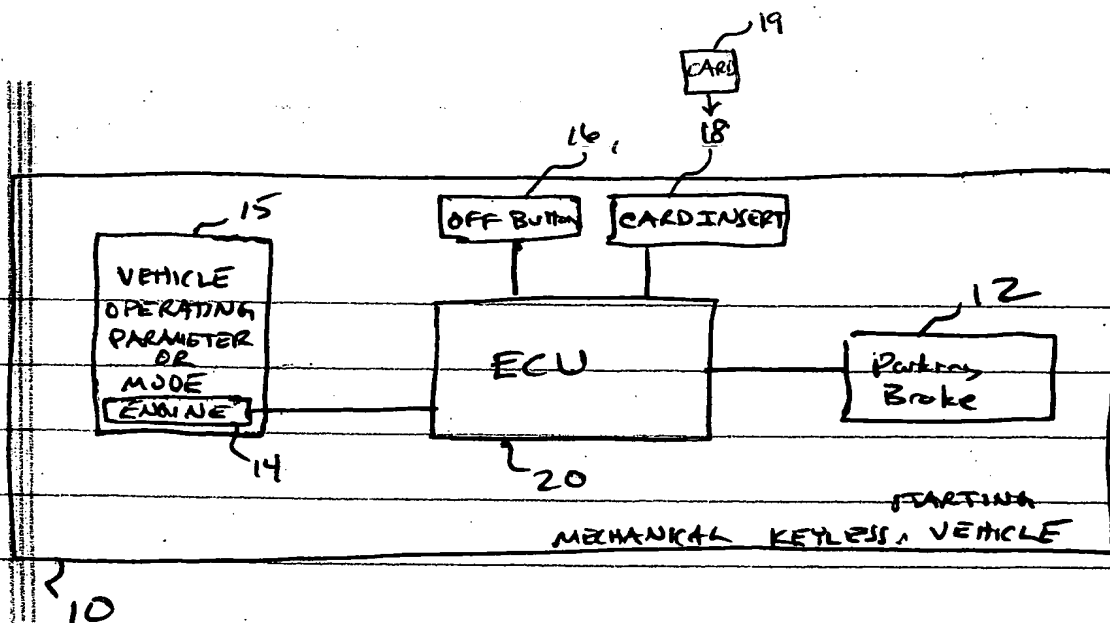 19
CARD
16,
18
15
OFF Button
CARD INSERT
VEHICLE
OPERATING
PARAMETER
OR
MODE
ENGINE
14
ECU
20
12
Parking
Brake
STARTING
MECHANICAL KEYLESS, VEHICLE
10